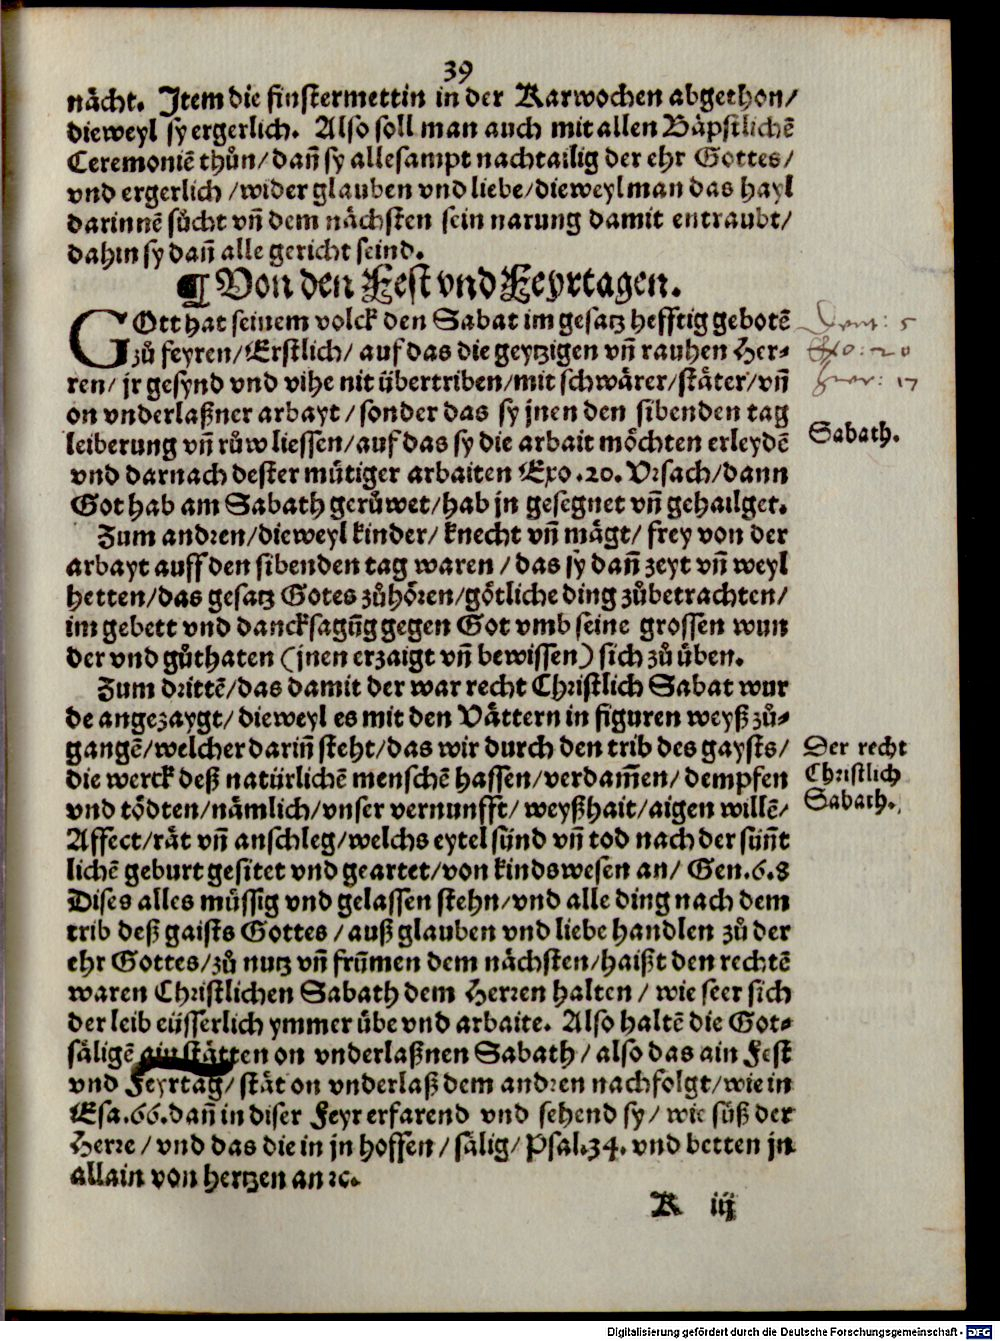 39
nächt. Item die finstermettin in der Karwochen abgethon/
dieweyl sy ergerlich. Also soll man auch mit allen Bäpstlichē
Ceremoniē thůn/ dañ sy allesampt nachtailig der ehr Gottes/
vnd ergerlich /wider glauben vnd liebe/ dieweyl man das hayl
darinnē sůcht vñ dem nächsten sein narung damit entraubt/
dahin sy dañ alle gericht seind.
¶ Von den Fest vnd Feyrtagen.
GOtt hat seinem volck den Sabat im gesatz hefftig gebotē
zů feyren/ Erstlich/ auf das die geytzigen vñ rauhen Her⸗
ren/ jr gesynd vnd vihe nit übertriben/mit schwärer/stäter/vñ
on vnderlaßner arbayt /sonder das sy jnen den sibenden tag
leiberung vñ růw liessen/auf das sy die arbait möchten erleydē
vnd darnach dester mütiger arbaiten Exo .20. Vrsach/dann
Got hab am Sabath gerůwet/hab jn gesegnet vñ gehailget.
Zum andren/dieweyl kinder/ knecht vñ mägt/ frey von der
arbayt auff den sibenden tag waren /das sy dañ zeyt vñ weyl
hetten/das gesatz Gotes zůhören/götliche ding zůbetrachten/
im gebett vnd dancksagũg gegen Got vmb seine grossen wun
der vnd gůthaten (jnen erzaigt vñ bewissen) sich zů üben.
Zum drittē/das damit der war recht Christlich Sabat wur
de angezaygt/ dieweyl es mit den Vättern in figuren weyß zů⸗
gangē/welcher dariñ steht/das wir durch den trib des gaysts/
die werck deß natürlichē menschē hassen/verdam̃en/ dempfen
vnd tödten/nämlich/vnser vernunfft/ weyßhait/aigen willē/
Affect/rät vñ anschleg/welchs eytel sünd vñ tod nach der süñt
lichē geburt gesitet vnd geartet/von kindswesen an/ Gen.6.8
Dises alles müssig vnd gelassen stehn/vnd alle ding nach dem
trib deß gaists Gottes /auß glauben vnd liebe handlen zů der
ehr Gottes/zů nutz vñ frũmen dem nächsten/haißt den rechtē
waren Christlichen Sabath dem Herren halten / wie seer sich
der leib eüsserlich ymmer übe vnd arbaite. Also haltē die Got⸗
säligē ain stätten on vnderlaßnen Sabath/ also das ain Fest
vnd Feyrtag/ stät on vnderlaß dem andren nachfolgt/wie in
Esa.66.dañ in diser Feyr erfarend vnd sehend sy/ wie süß der
Herre /vnd das die in jn hoffen /sälig/ Psal.34. vnd betten jn
allain von hertzen an ⁊c.
K iij
Exo: 20
17
Sabath.
Der recht
Christlich
Sabath.
Digitalisierung gefördert durch die Deutsche Forschungsgemeinschaft - DFG